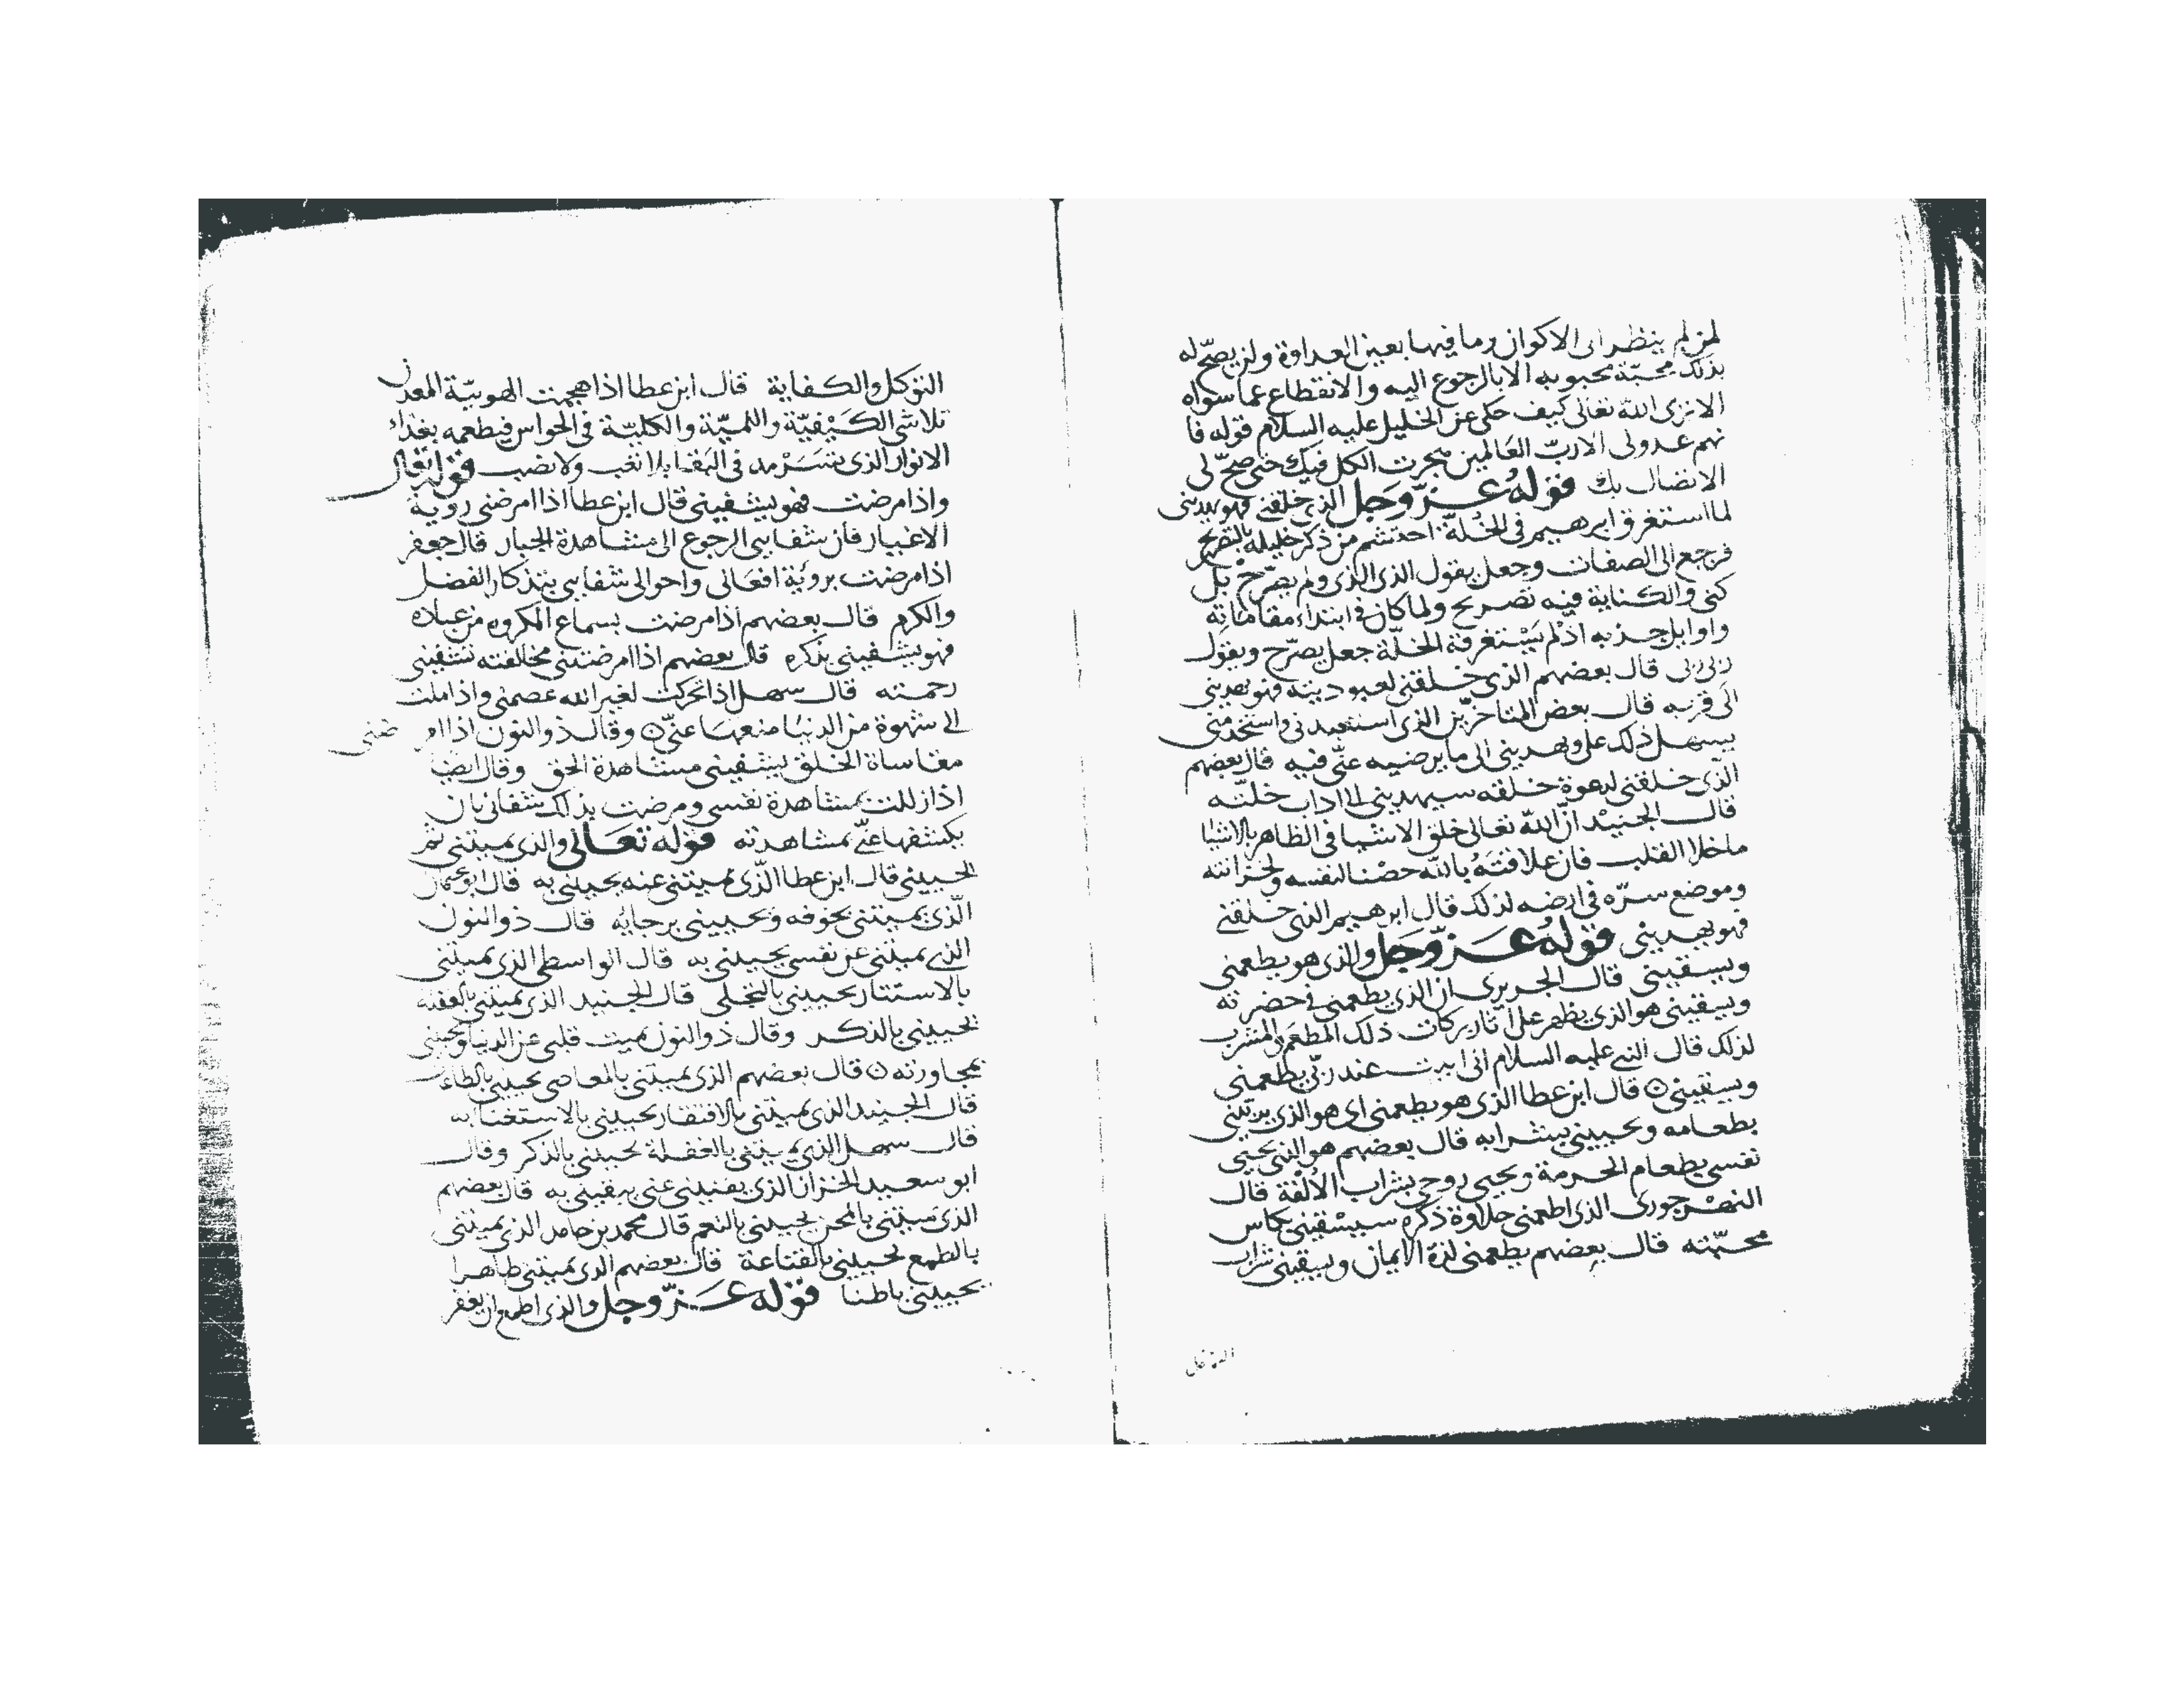 لمن لم ينظر الى الاكوان وما فيها بعين العداوة ولن يصحّ له
بذلك محبّة محبوبه الا بالرجوع اليه والانقطاع عما سواه
الا ترى الله تعالى كيف حكى عن الخليل عليه السلام قوله فا
نهم عدو لى الا ربّ العالمين هجرت الكل فيك حتى صحّ لى
الاتصال بك قوله عزّ وجل الذى خلقنى فهو يهدينى
لما استغرق ابرهيم فى الخلّة احتشم من ذكر خليله بالتصريح
فرجع الى الصفات وجعل يقول الذى الذى ولم يصرّح بل
كنى والكناية فيه تصريح ولما كان فى ابتداء مقاماته
واوايل جذبه اذ لم يستغرقه الخلّة جعل يصرّح ويقول
ربى ربى قال بعضهم الذى خلقنى لعبوديته فهو يهدينى
الى قربه قال بعض المتاخرين الذى استعبدنى واستخدمنى
يسهل ذلك على ويهدينى الى ما يرضيه عنّى فيه قال بعضهم
الذى خلقنى لدعوة خلقه سيهدينى لاداب خلّته
قال الجنيد انّ الله تعالى خلق الاشيا فى الظاهر بالاشيا
ما خلا القلب فان علاقته بالله حصنا لنفسه ولخزانته
وموضع سرّه فى ارضه لذلك قال ابرهيم الذى خلقنى
فهو يهدينى قوله عزّ وجل والذى هو يطعمنى
ويسقينى قال الجريرى ان الذى يطعمنى فى حضرته
ويسقينى هو الذى يظهر على اثار بركات ذلك المطعم والمشرب
لذلك قال النبى عليه السلام انى ابيت عند ربّى يطعمنى
ويسقينى قال ابن عطا الذى هو يطعمنى اى هو الذى يربّينى
بطعامه ويحيينى بشرابه قال بعضهم هو الذى يحيى
نفسى بطعام الحرمة ويحيى روحى بشراب الالفة قال
النهرجورى الذى اطعمنى حلاوة ذكره سيسقينى بكاس
محبّته قال بعضهم يطعمنى لذة الايمان ويسقينى شراب
التوكل
التوكل والكفاية قال ابن عطا اذا هجمت الهوييّة المعدن
تلاشى الكيفيّة واللميّة والكليّة فى الحواس فيطعمه بغذاء
الانوار الذى يتسرمد فى البقا بلا تعب ولا نصب قوله تعالى
واذا مرضت فهو يشفينى قال ابن عطا اذا امرضنى روية
الاغيار فان شفايى الرجوع الى مشاهدة الجبار قال جعفر
اذا مرضت بروية افعالى واحوالى شفانى بتذكار الفضل
والكرم قال بعضهم اذا مرضت بسماع المكروه من عباده
فهو يشفينى بذكره قال بعضهم اذا امرضتنى مخالفته تشفينى
رحمته قال سهل اذا تحركت لغير الله عصمنى واذا ملت
الى شهوة من الدنيا منعها عنّى وقال ذو النون اذا امرضنى
مقاساة الخلق يشفينى مشاهدة الحق وقال ايضا
اذا زللت بمشاهدة نفسى ومرضت بذلك شفانى بان
يكشفها عنّى بمشاهدته قوله تعالى والذى يميتنى ثم
يحيينى قال ابن عطا الذى يميتنى عنه يحيينى به قال ابو عثمان
الّذى يميتنى بخوفه ويحيينى برجايه قال ذو النون
الذى يميتنى عن نفسى يحيينى به قال الواسطى الذى يميتنى
بالاستتار يحيينى بالتجلى قال الجنيد الذى يميتنى بالغفلة
يحيينى بالذكر وقال ذو النون يميت قلبى عن الدنيا ويحيينى
بمجاورته قال بعضهم الذى يميتنى بالمعاصى يحيينى بالطاعة
قال الجنيد الذى يميتنى بالافتقار يحيينى بالاستغنا به
قال سهل الذى يميتنى بالغفلة يحيينى بالذكر وقال
ابو سعيد الخزاز الذى يفنينى عنى يبقينى به قال بعضهم
الذى يميتنى بالمحن يحيينى بالنعم قال محمد بن حامد الذى يميتنى
بالطمع يحيينى بالقناعة قال بعضهم الذى يميتنى ظاهرا
يحيينى باطنا قوله عزّ وجل والذى اطمع ان يغفر